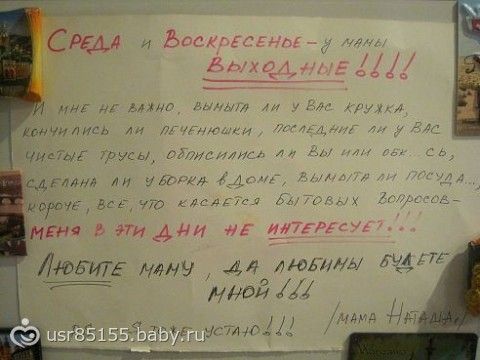 СРЕДА и ВОСКРЕСЕНЬЕ - у мамы
ВЫХОДНЫЕ!!!!
И мне не важно, вымыта ли у Вас кружка,
кончились ли печенюшки, последние ли у Вас
чистые трусы, описились ли Вы или обк...сь,
сделана ли уборка в доме, вымыта ли посуда...,
короче, всё, что касается бытовых вопросов-
МЕНЯ В ЭТИ ДНИ НЕ ИНТЕРЕСУЕТ!!!
ЛЮБИТЕ МАМУ, ДА ЛЮБИМЫ БУДЕТЕ
МНОЙ!!!
устаю!!! /мама Наташа/
usr85155.baby.ru